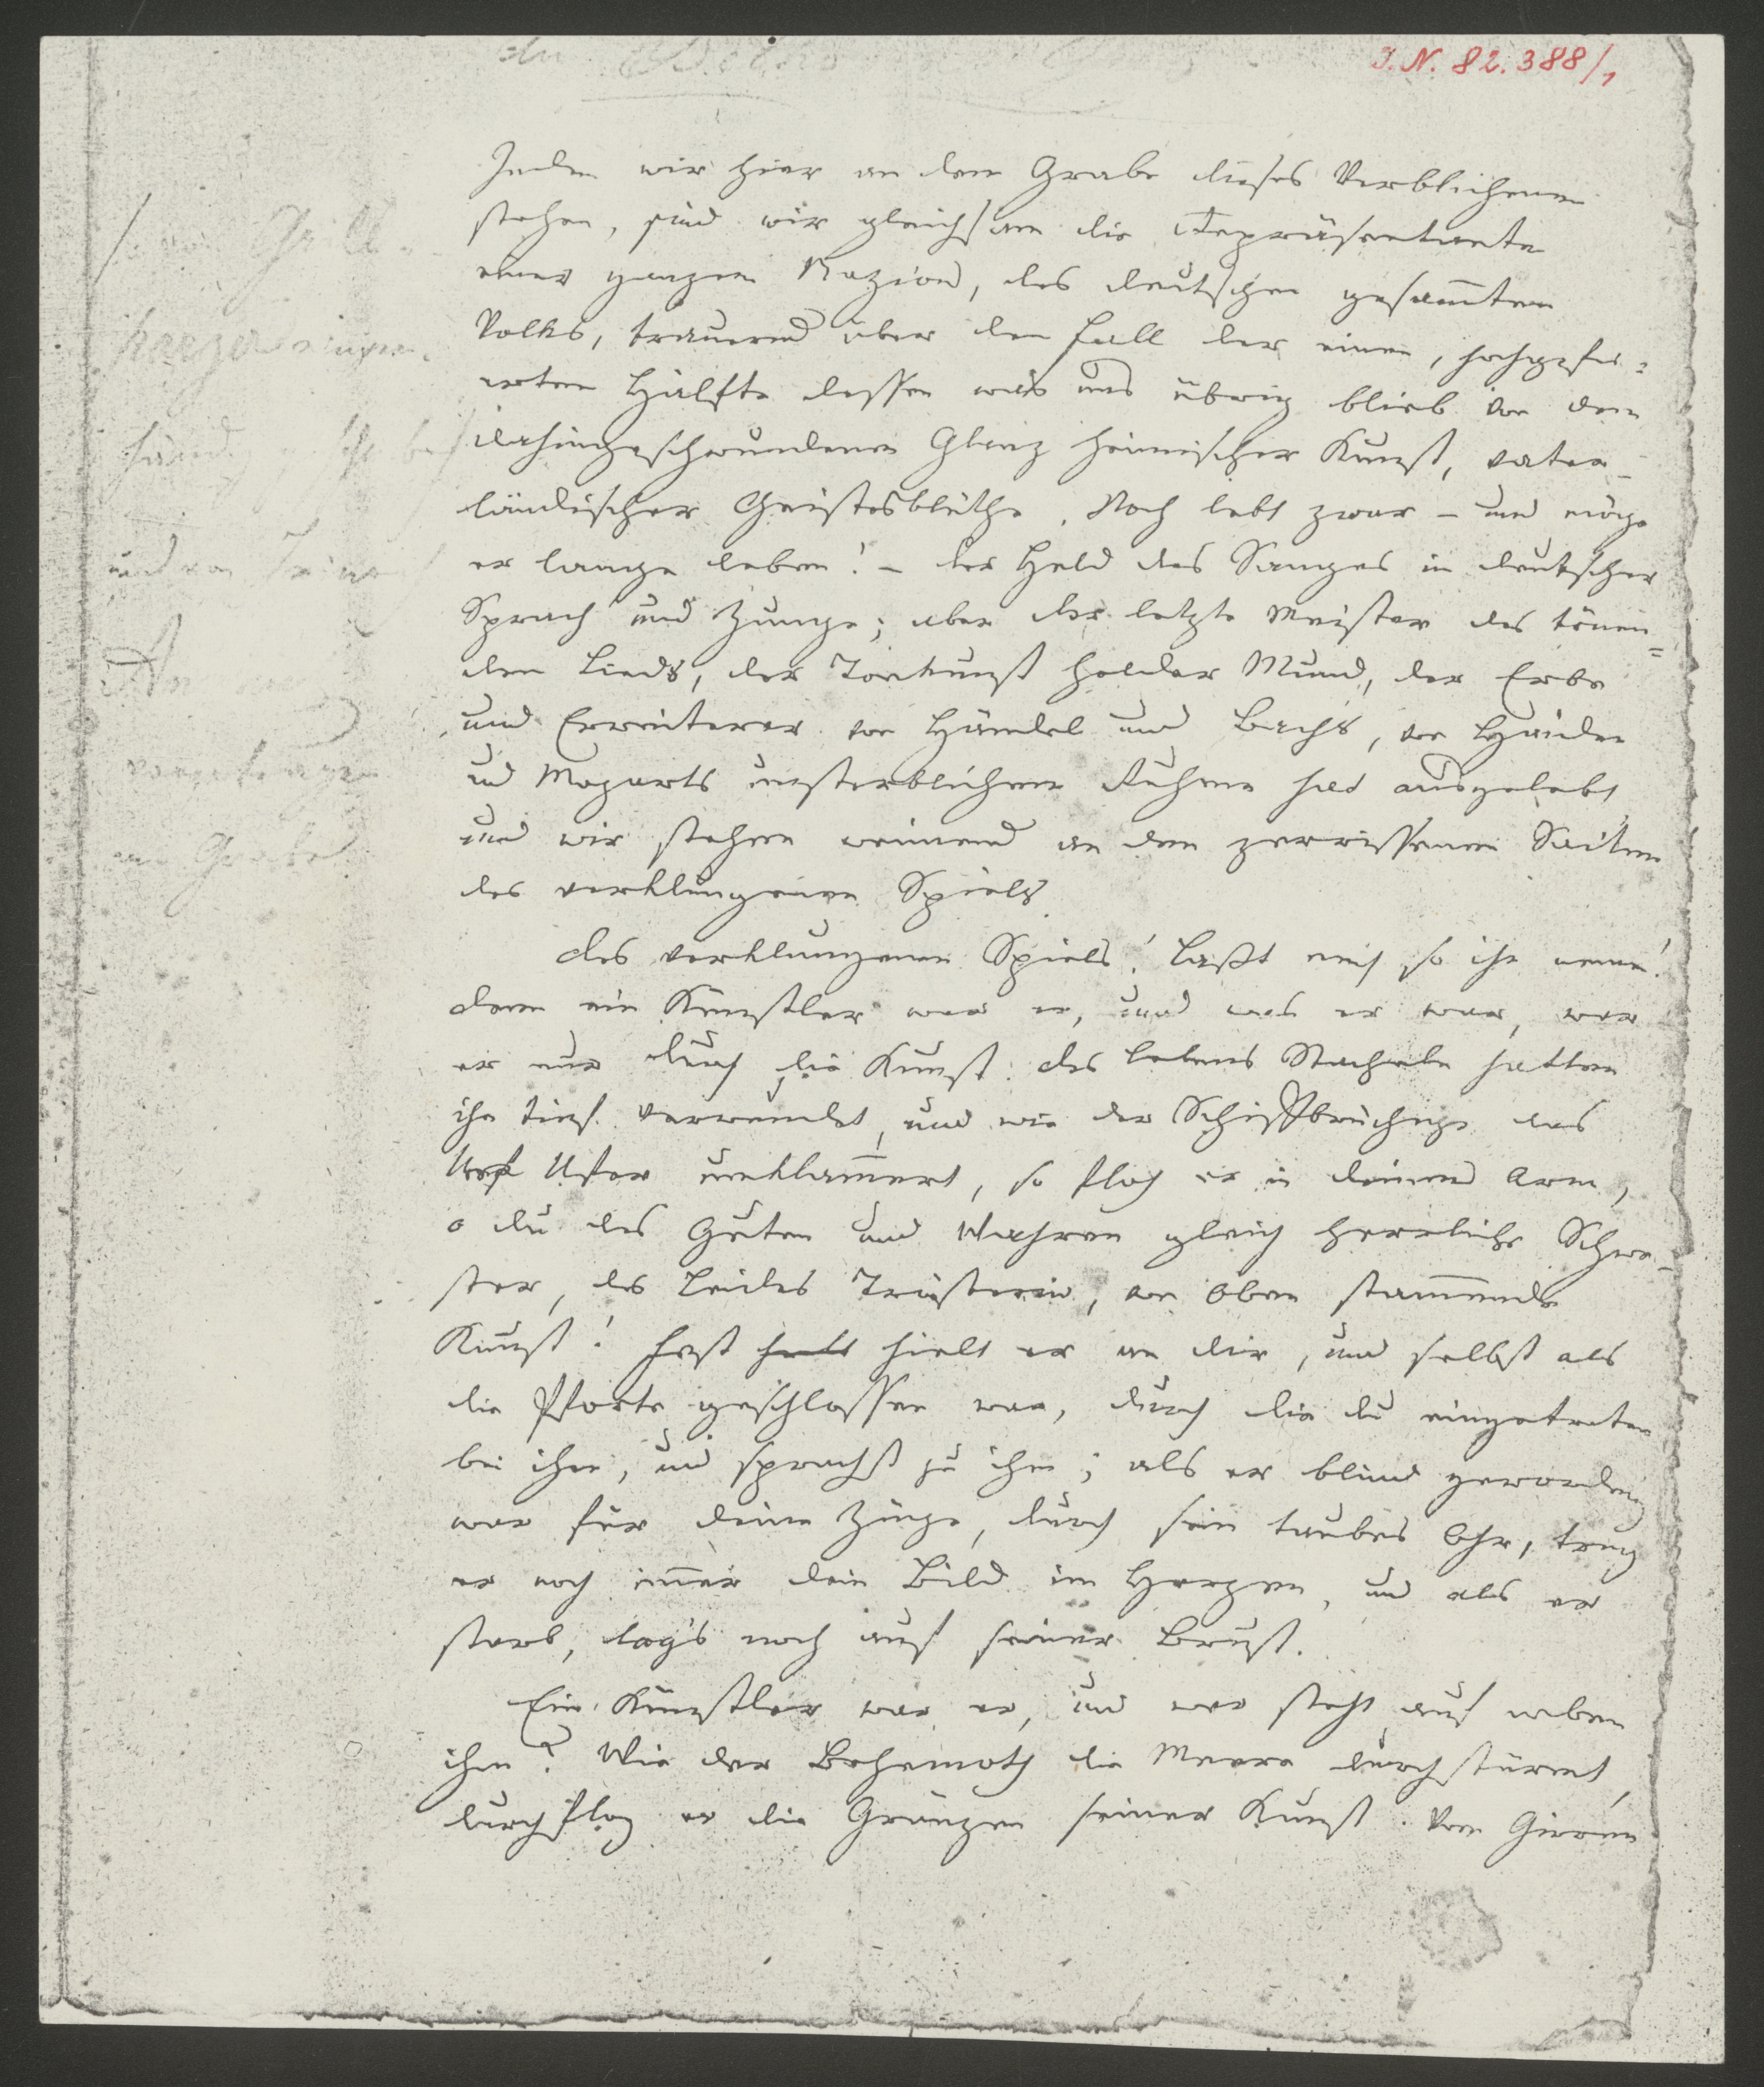 J. N. 82.388/1
Indem wir hier an dem Grabe dieses Verblichenen
stehen, sind wir gleichsam die Repräsentanten
einer ganzen Nazion, des deutschen gesam̅ten
Volks, trauernd über den Fall der einen, hochgefei=
erten Hälfte dessen was uns übrig blieb von dem
dahingeschwundenen Glanz heimischer Kunst, vater-
ländischer Geistesblüthe. Noch lebt zwar – und möge
er lange leben! – der Held des Sanges in deutscher
Sprach und Zunge; aber der letzte Meister des tönen=
den Lieds, der Tonkunst holder Mund, der Erbe
und Erweiterer von Händel und Bachs, von Haiden
und Mozarts unsterblichem Ruhme hat ausgelebt
und wir stehen weinend an den zerrissenen Saiten
des verklungenen Spiels
des verklungenen Spiels! Laßt mich so ihn nennen!
denn ein Künstler war er, und was er war, war
er nur durch die Kunst. des Lebens Stacheln hatten
ihn tief verwundet, und wie der Schiffbrüchige das
Ufer umklam̅ert, so floh er in deinen Arm,
o du des Guten und Wahren gleich herrliche Schwe-
ster, des Leides Trösterin, von Oben stam̅ende
Kunst! Fest hielt er an dir, und selbst als
die Pforte geschlossen war, durch die du eingetreten
bei ihm, und sprachst zu ihm; als er blind geworden
war für deine Züge, durch sein taubes Ohr, trug
er noch im̅er dein Bild im Herzen, und als er
starb, lag's noch auf seiner Brust.
Ein Künstler war er, und wer steht auf neben
ihm? Wie der Behemoth die Meere durchstürmt,
durchflog er die Gränzen seiner Kunst. Vom Girren